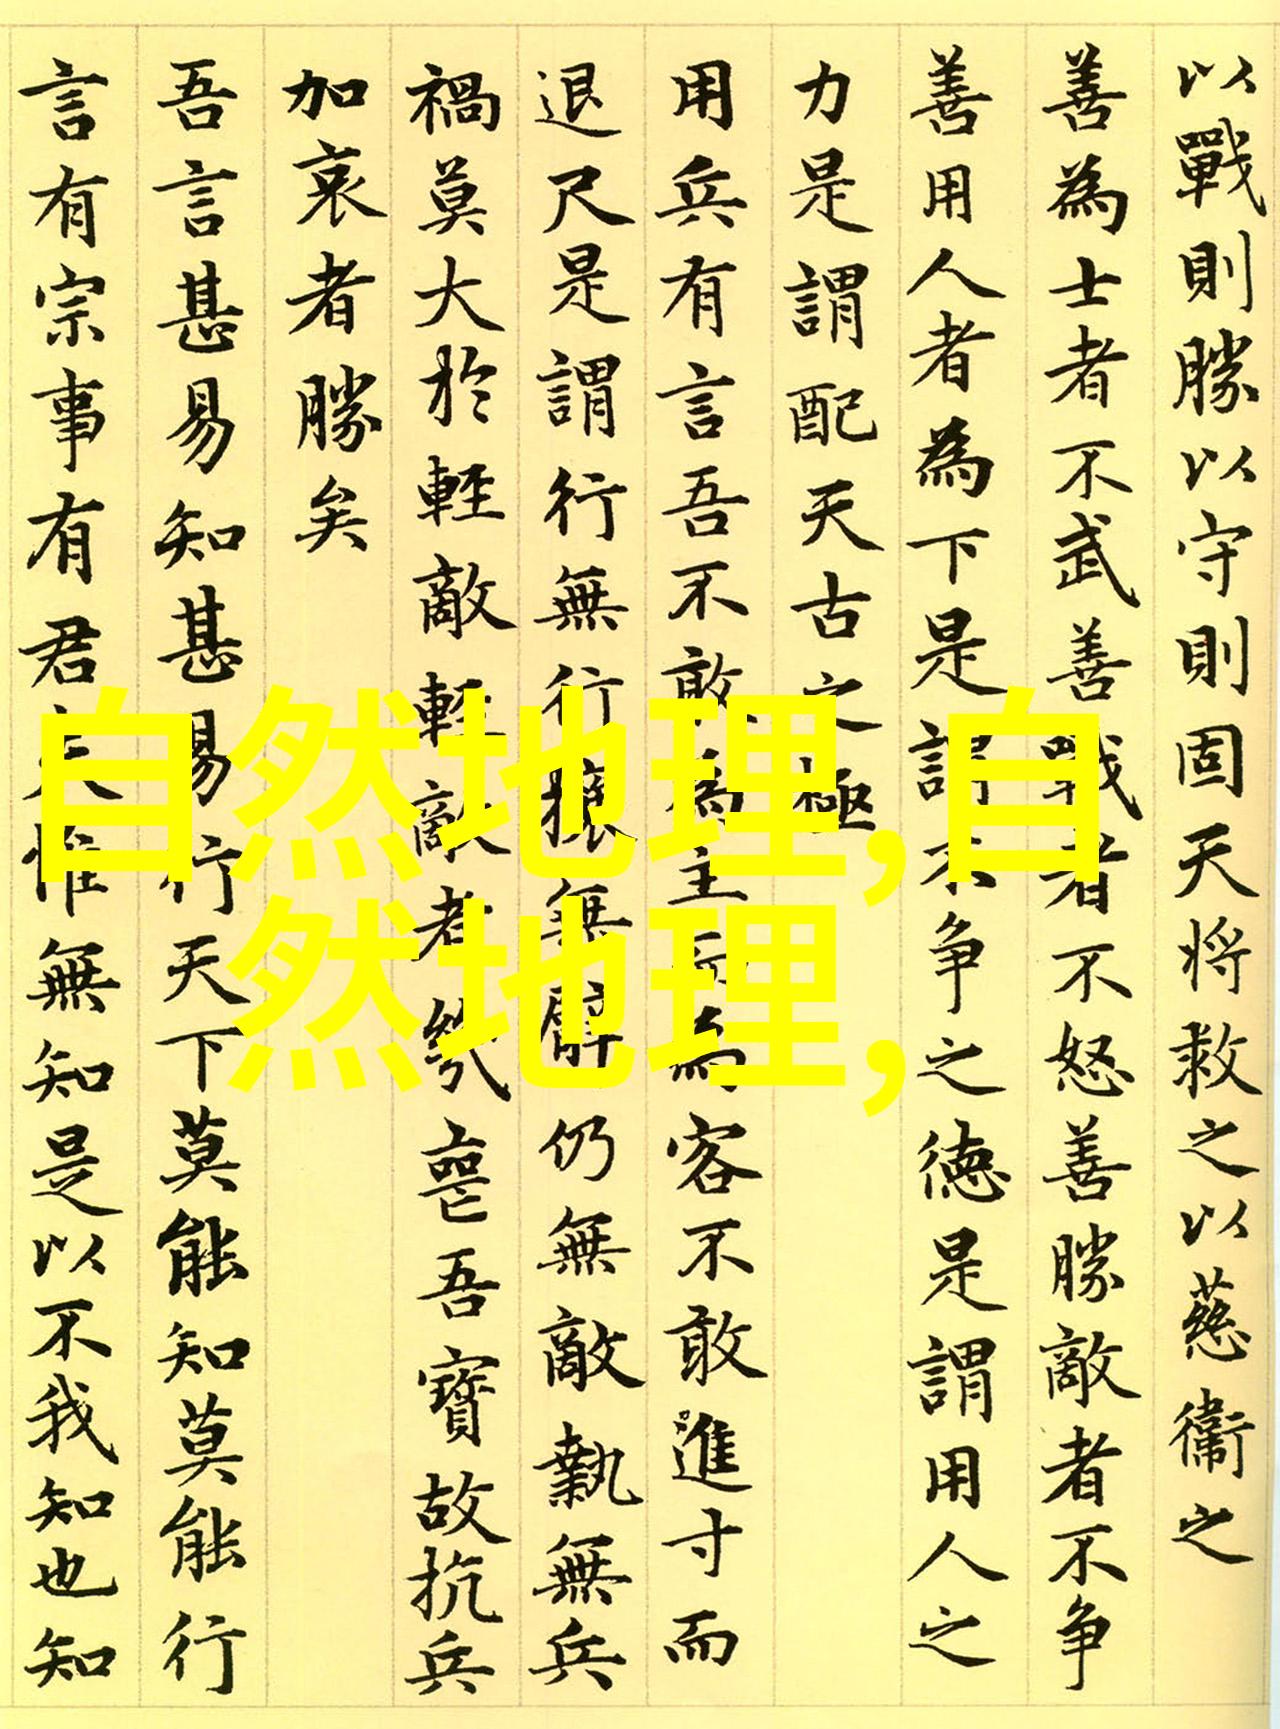 以戰則勝以守則固天將救之以慈衞之
善為士者不武善戰者不怒善勝敵者不争
善用人者為下是謂不争之德是謂用人之
力是謂配天古之極
用兵有言吾不敢為主而為客不敢進寸而
退尺是謂行無行攘無臂仍無敵執無兵
禍莫大於輕敵輕敵者幾喪吾寶故抗兵
加哀者勝矣
吾言甚易知甚易行天下莫能知莫能行
言有宗事有君夫惟無知是以不我知也知
自然地理,自
然地理,